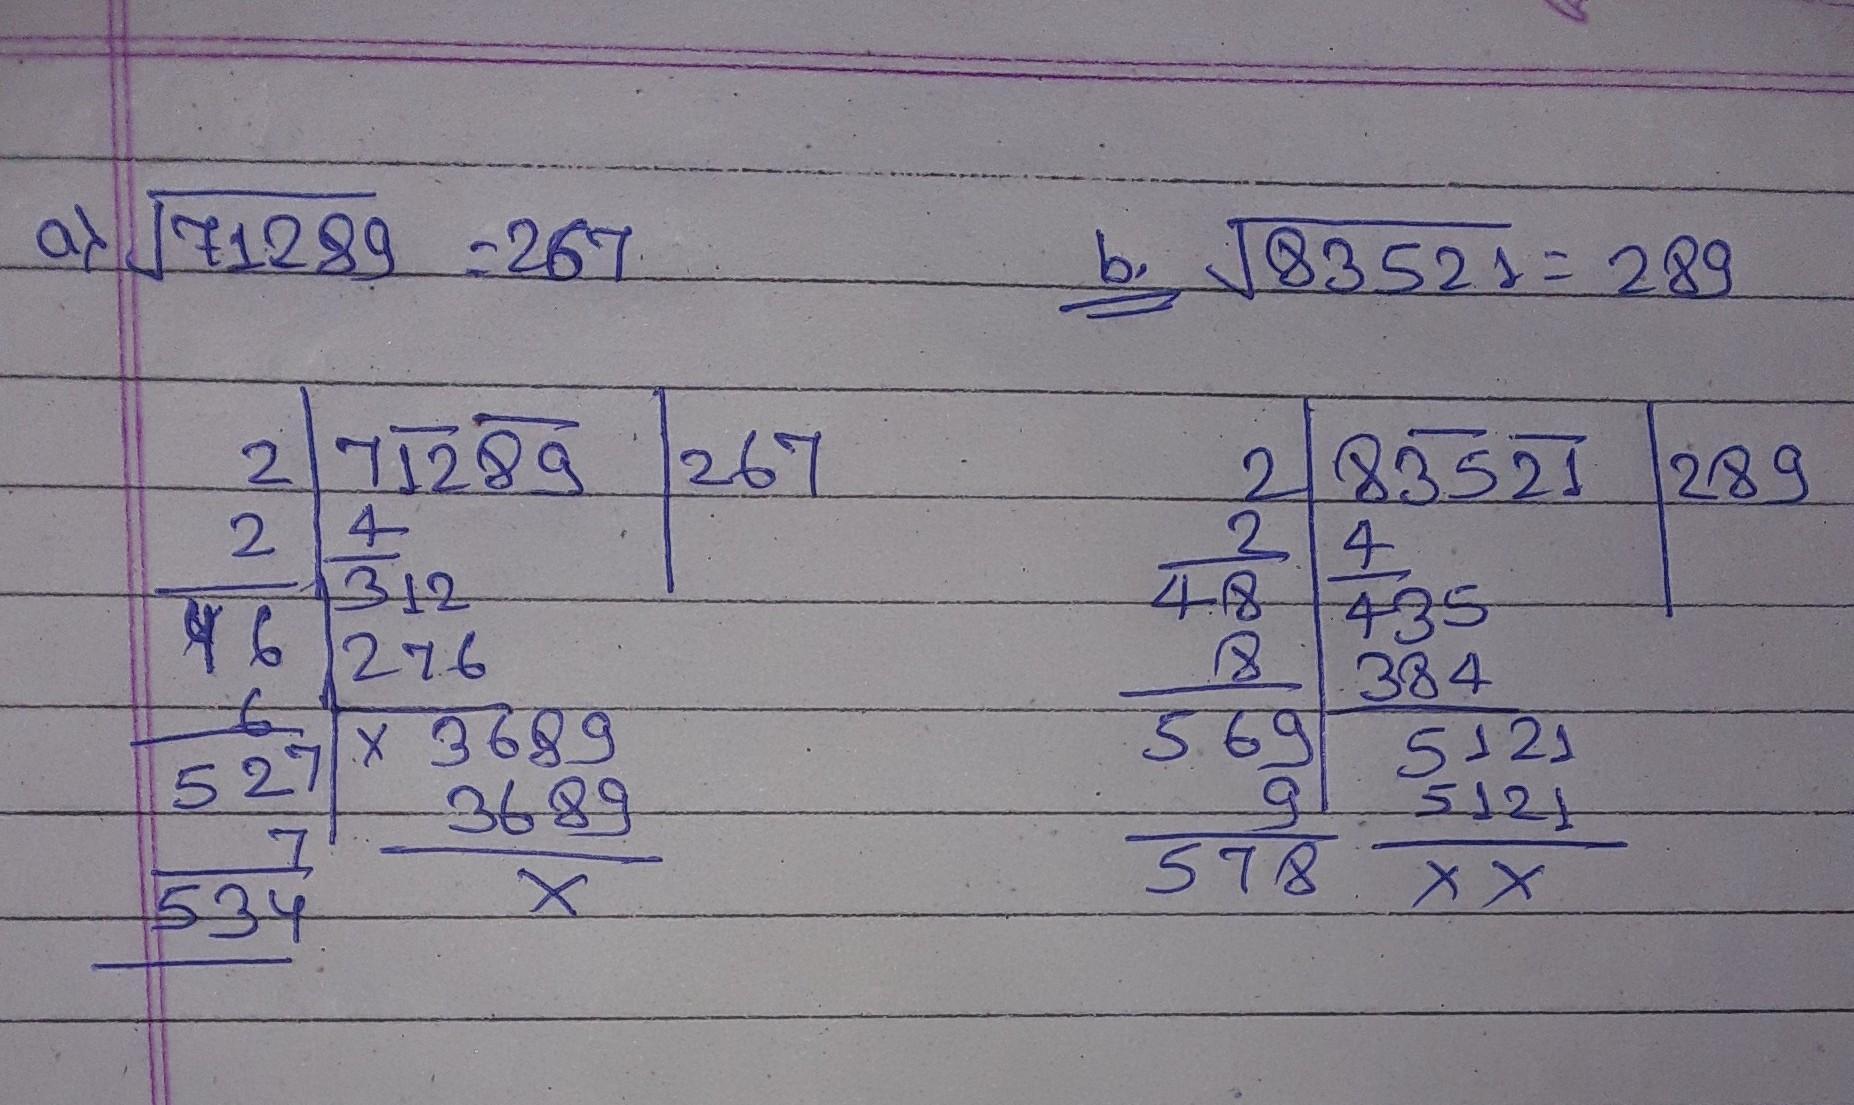 a) √71289 = 267
2 | 71289 | 267
2 | 4
46 | 312
6 | 276
527 | x 3689
7 3689
534 x
b. √83521 = 289
2 | 83521 | 289
2 | 4
48 | 435
8 | 384
569 | 5121
9 | 5121
578 x x